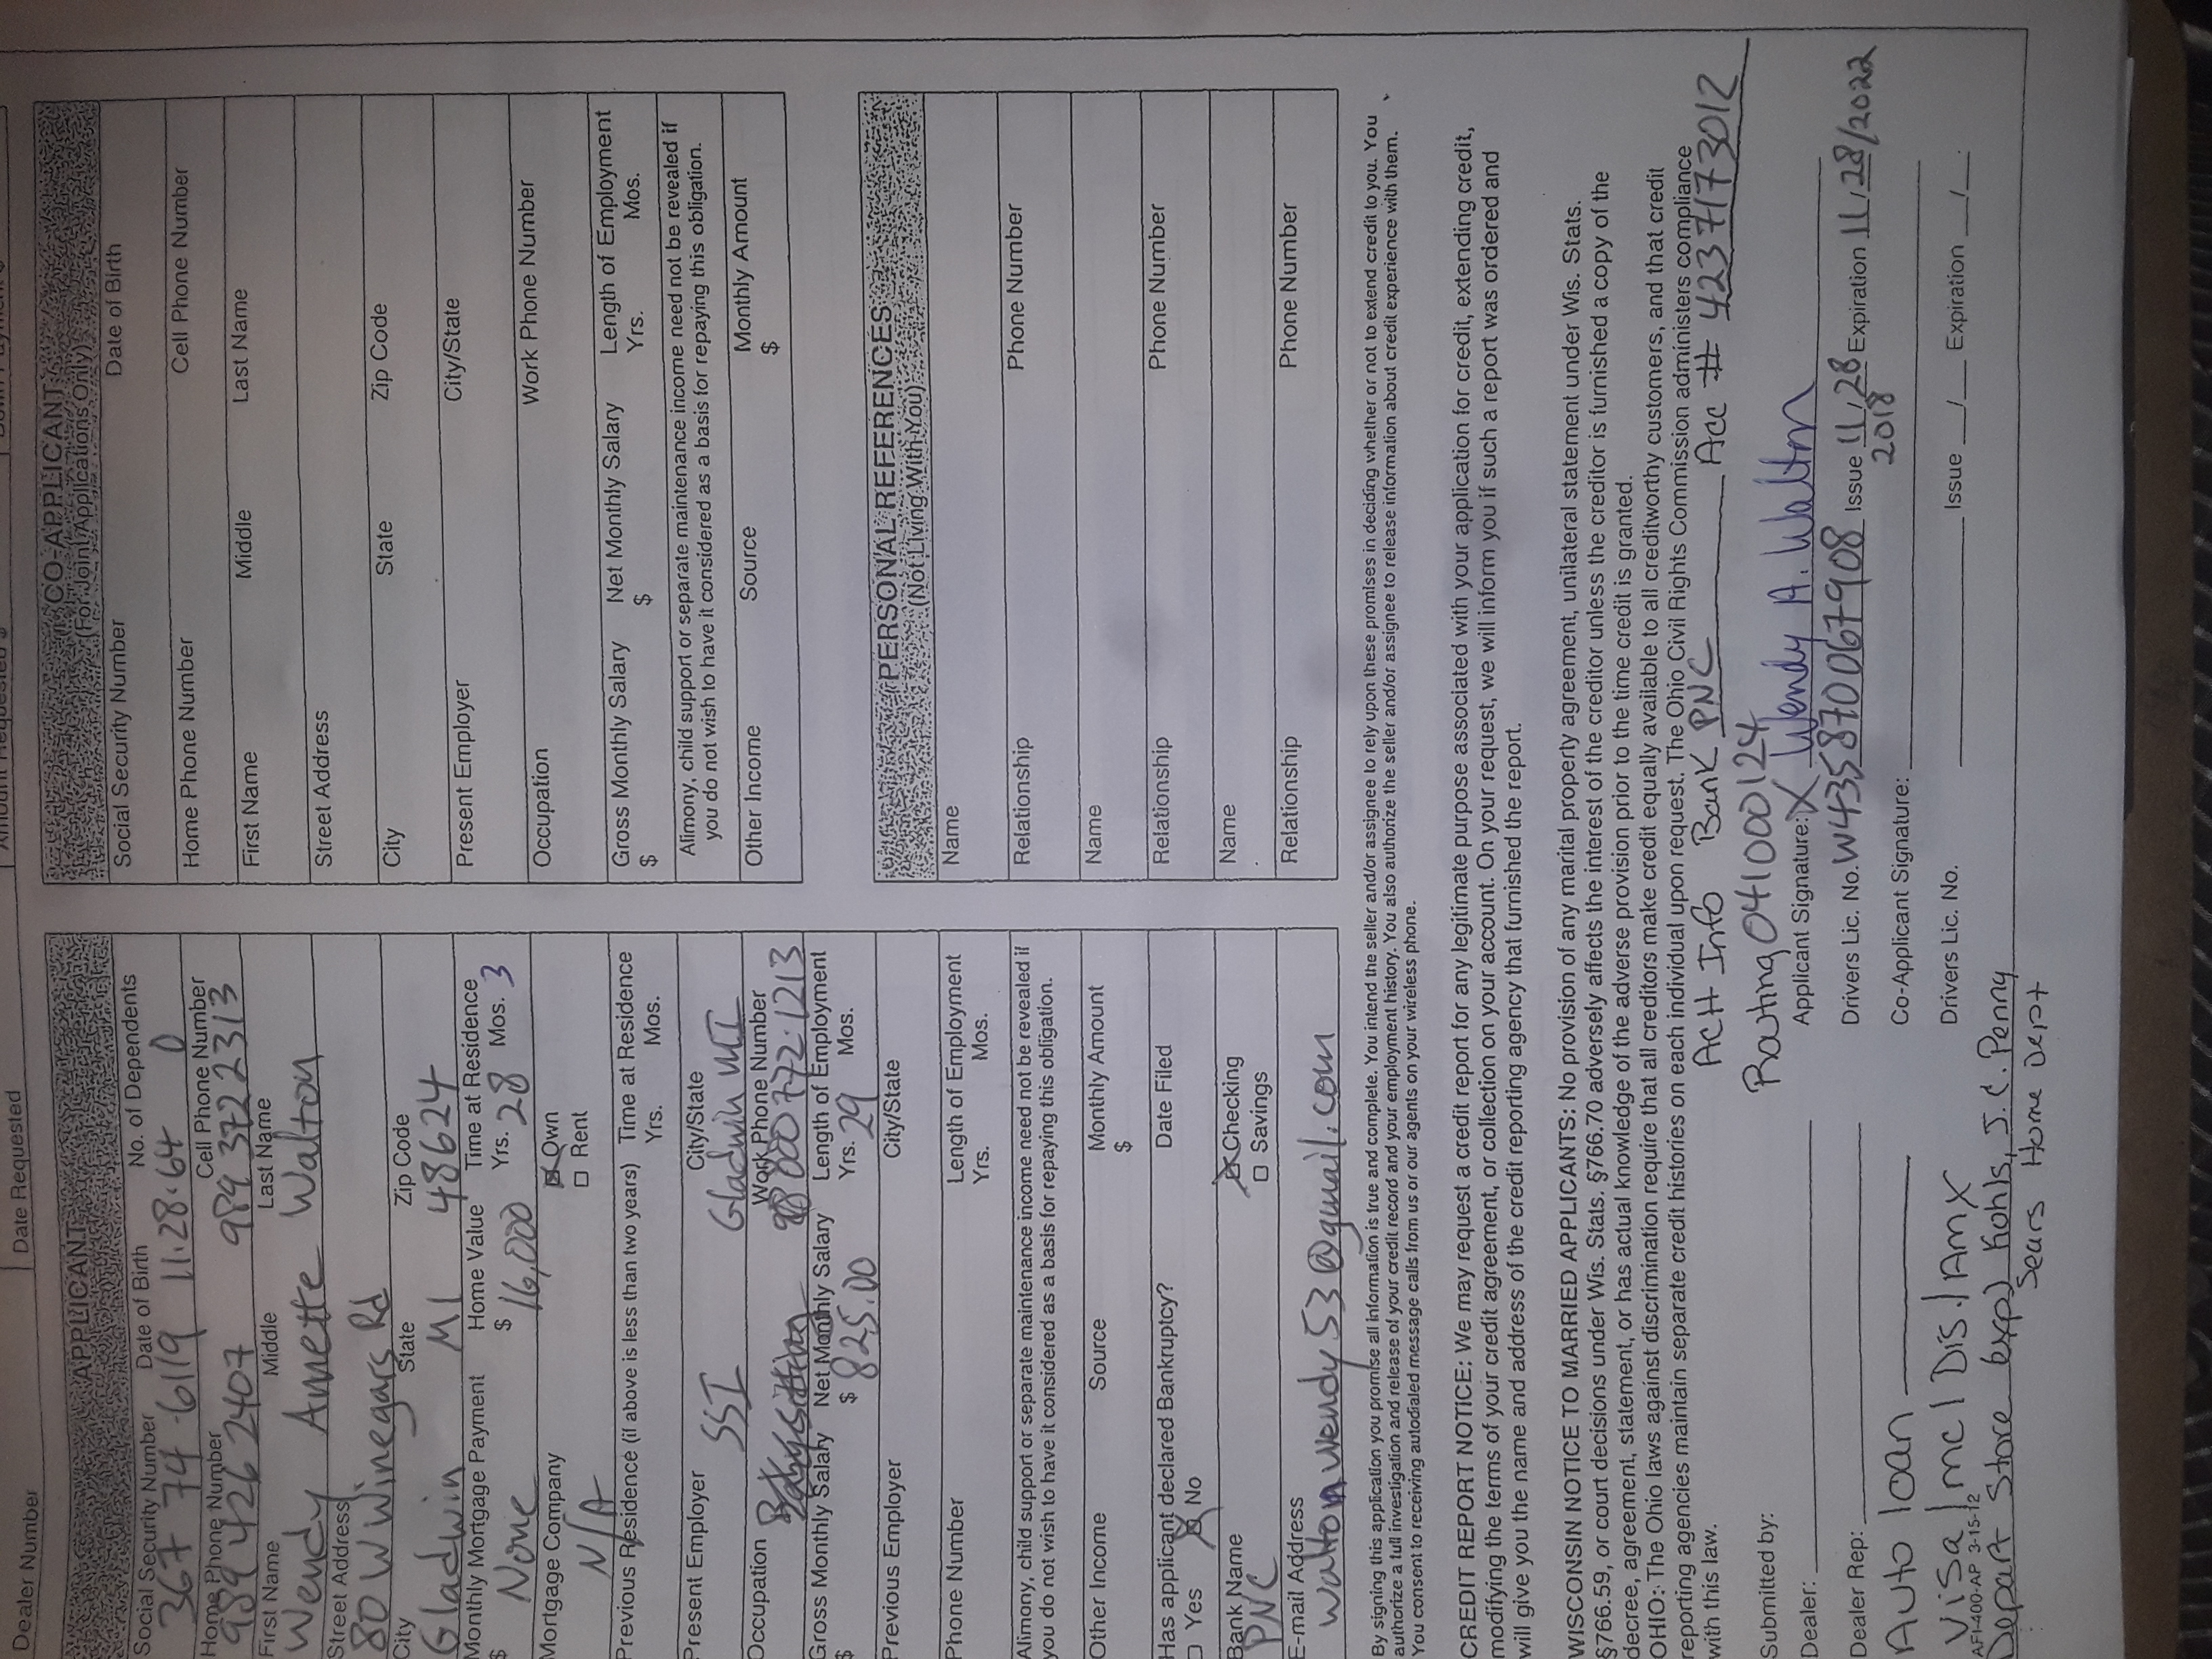 Dealer Number
Date Requested
APPLICANT
Social Security Number Date of Birth No. of Dependents
367 74-6119 11.28.64 0
Home Phone Number Cell Phone Number
989 426 2407 989 372 2313
First Name Middle Last Name
Wendy Annette Walton
Street Address
80 W Winegars Rd
City State Zip Code
Gladwin MI 48624
Monthly Mortgage Payment Home Value Time at Residence
$ None $ 16,000 Yrs. 28 Mos. 3
Mortgage Company Own
N/A Rent
Previous Residence (if above is less than two years) Time at Residence
Yrs. Mos.
Present Employer City/State
SSI Gladwin MI
Occupation Work Phone Number
Babysitting 800 772-1213
Gross Monthly Salary Net Monthly Salary Length of Employment
$ $ 825.00 Yrs. 29 Mos.
Previous Employer City/State
Phone Number Length of Employment
Yrs. Mos.
Alimony, child support or separate maintenance income need not be revealed if
you do not wish to have it considered as a basis for repaying this obligation.
Other Income Source Monthly Amount
$
Has applicant declared Bankruptcy? Date Filed
Yes No
Bank Name Checking
PNC Savings
E-mail Address
waltonwendy53@gmail.com
CO-APPLICANT
(For Joint Applications Only)
Social Security Number Date of Birth
Home Phone Number Cell Phone Number
First Name Middle Last Name
Street Address
City State Zip Code
Present Employer City/State
Occupation Work Phone Number
Gross Monthly Salary Net Monthly Salary Length of Employment
$ $ Yrs. Mos.
Alimony, child support or separate maintenance income need not be revealed if
you do not wish to have it considered as a basis for repaying this obligation.
Other Income Source Monthly Amount
$
PERSONAL REFERENCES
(Not Living With You)
Name
Relationship Phone Number
Name
Relationship Phone Number
Name
Relationship Phone Number
By signing this application you promise all information is true and complete. You intend the seller and/or assignee to rely upon these promises in deciding whether or not to extend credit to you. You
authorize a full investigation and release of your credit record and your employment history. You also authorize the seller and/or assignee to release information about credit experience with them.
You consent to receiving autodialed message calls from us or our agents on your wireless phone.
CREDIT REPORT NOTICE: We may request a credit report for any legitimate purpose associated with your application for credit, extending credit,
modifying the terms of your credit agreement, or collection on your account. On your request, we will inform you if such a report was ordered and
will give you the name and address of the credit reporting agency that furnished the report.
WISCONSIN NOTICE TO MARRIED APPLICANTS: No provision of any marital property agreement, unilateral statement under Wis. Stats.
§766.59, or court decisions under Wis. Stats. §766.70 adversely affects the interest of the creditor unless the creditor is furnished a copy of the
decree, agreement, statement, or has actual knowledge of the adverse provision prior to the time credit is granted.
OHIO: The Ohio laws against discrimination require that all creditors make credit equally available to all creditworthy customers, and that credit
reporting agencies maintain separate credit histories on each individual upon request. The Ohio Civil Rights Commission administers compliance
with this law.
ACH Info Bank PNC Acc # 4237173012
Routing 041000124
Submitted by:
Applicant Signature: X Wendy A. Walton
Dealer:
Drivers Lic. No. W435870067908 Issue 11/28 2018 Expiration 11/28/2022
Dealer Rep:
Co-Applicant Signature:
Drivers Lic. No. Issue / Expiration /
Auto loan
Visa/mc/Dis./Amx
AFI-400-AP 3-15-12
Depart Store exp) Kohls, J.C. Penny
Sears Home Dept